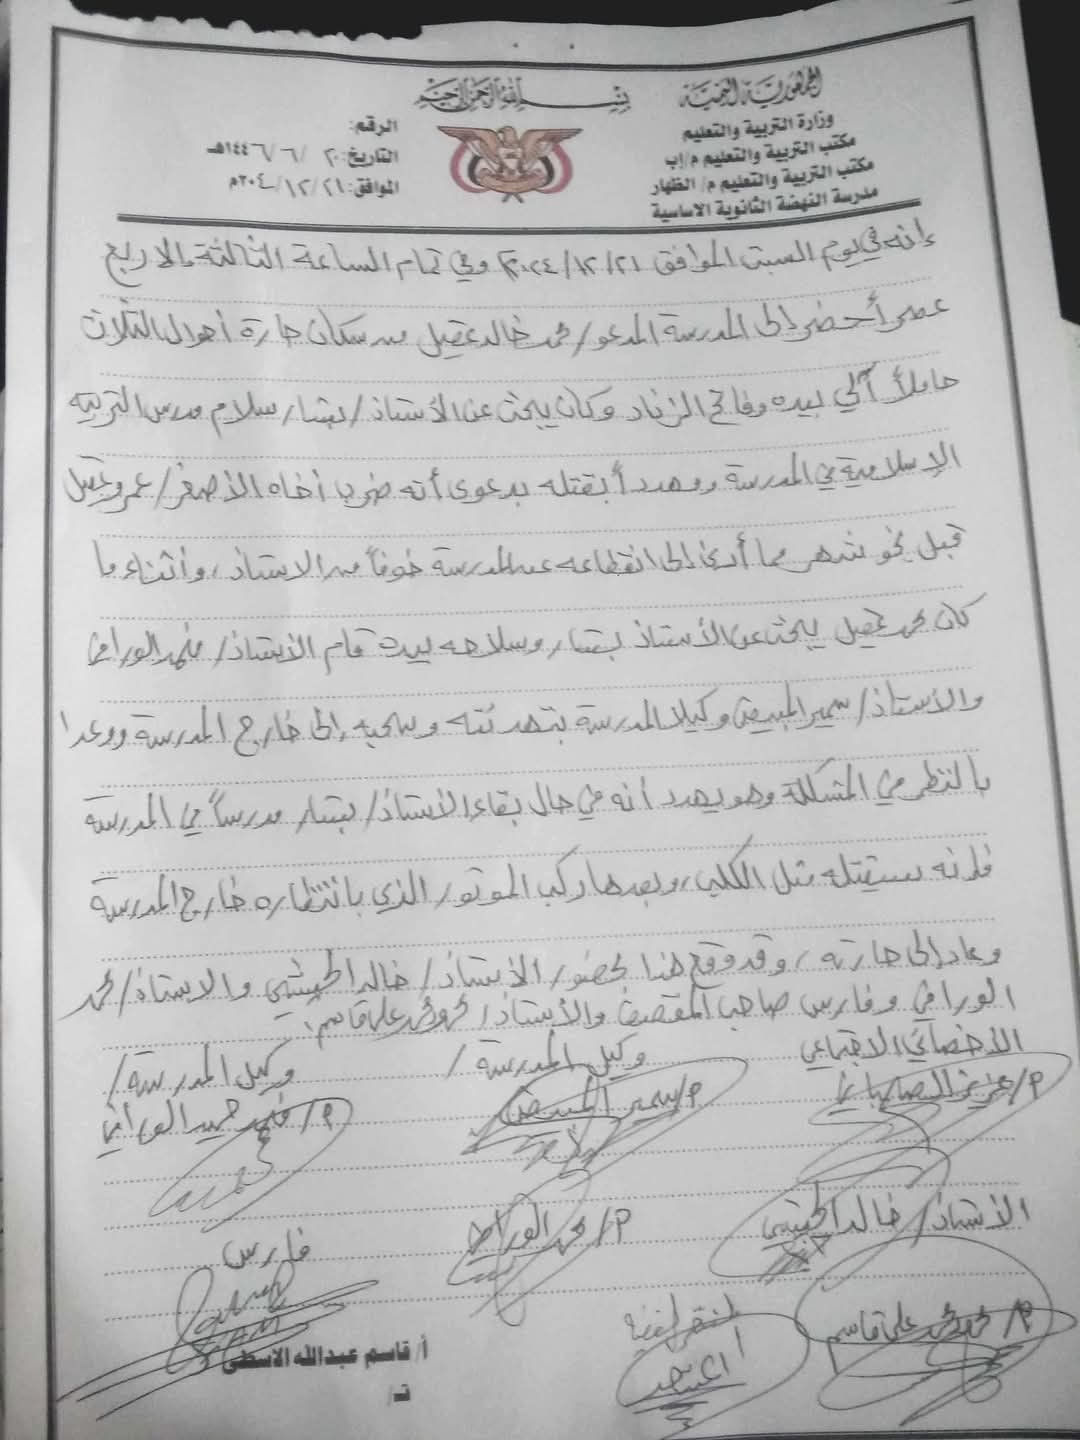 بسم الله الرحمن الرحيم
الجمهورية اليمنية
وزارة التربية والتعليم
مكتب التربية والتعليم م/إب
مكتب التربية والتعليم م/ الظهار
مدرسة النهضة الثانوية الاساسية
الرقم:
التاريخ: ٢٠ / ٦ / ١٤٤٦هـ
الموافق: ٢١ / ١٢ / ٢٠٢٤م
إنه في يوم السبت الموافق ٢١/١٢/٢٠٢٤م وفي تمام الساعة الثالثة إلا ربع
عصر أحضر إلى المدرسة المدعو/ محمد خالد عقيل من سكان حارة أهوال الثلاث
حاملاً آلي بيده وفاتح الزناد وكان يبحث عن الأستاذ/ بشار سلام مدرس التربية
الإسلامية في المدرسة ومهدداً بقتله بدعوى أنه ضرب أخاه الأصغر/ عمرو عقيل
قبل نحو شهر مما أدى إلى انقطاعه عن المدرسة خوفاً من الاستاذ، وأثناء ما
كان محمد عقيل يبحث عن الأستاذ بشار وسلاحه بيده قام الأستاذ/ الورافي
والأستاذ/ سمير المبيض وكيلا المدرسة بتهدئته وسحبه إلى خارج المدرسة ووعدا
بالنظر في المشكلة وهو يهدد أنه في حال بقاء الأستاذ/ بشار مدرساً في المدرسة
فإنه سيقتله مثل الكلب، وبعدها ركب الموتور الذي بانتظاره خارج المدرسة
وعاد إلى حارته، وقد وقع هذا بحضور الأستاذ/ خالد الحبيشي والاستاذ/ محمد
الورافي وفارس صاحب المقصف والأستاذ/ محمد محمد علي قاسم.
الأخصائي الاجتماعي وكيل المدرسة/ وكيل المدرسة/
م/ عزيز م/ سمير المبيض م/ حميد الورافي
الأستاذ/ خالد الحبيشي م/ محمد الورافي فارس
م/ محمد محمد علي قاسم
أ/ قاسم عبدالله الاسطى
ت/